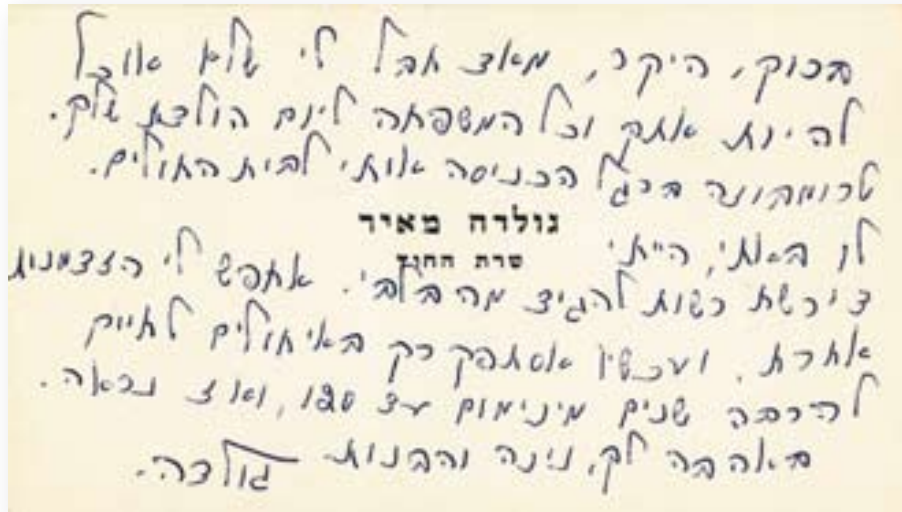 ברוך, היקר, מאד חבל לי שלא אוכל
להיות אתך וכל המשפחה ליום הולדת שלך.
טרומבוזה ברגל הכניסה אותי לבית החולים.
גולדה מאיר
שרת החוץ
לו באתי, הייתי
דורשת רשות להגיד מה בלבי. אחפש לי הזדמנות
אחרת. ועכשיו אסתפק רק באיחולים לחייך
להרבה שנים מינימום עד 120, ואז נראה.
באהבה לך, נינה והבנות גולדה.